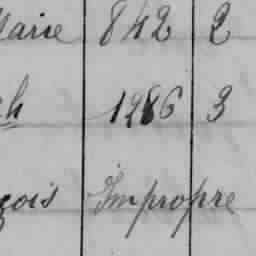 Marie 842 2
ch 1286 3
çois Impropre